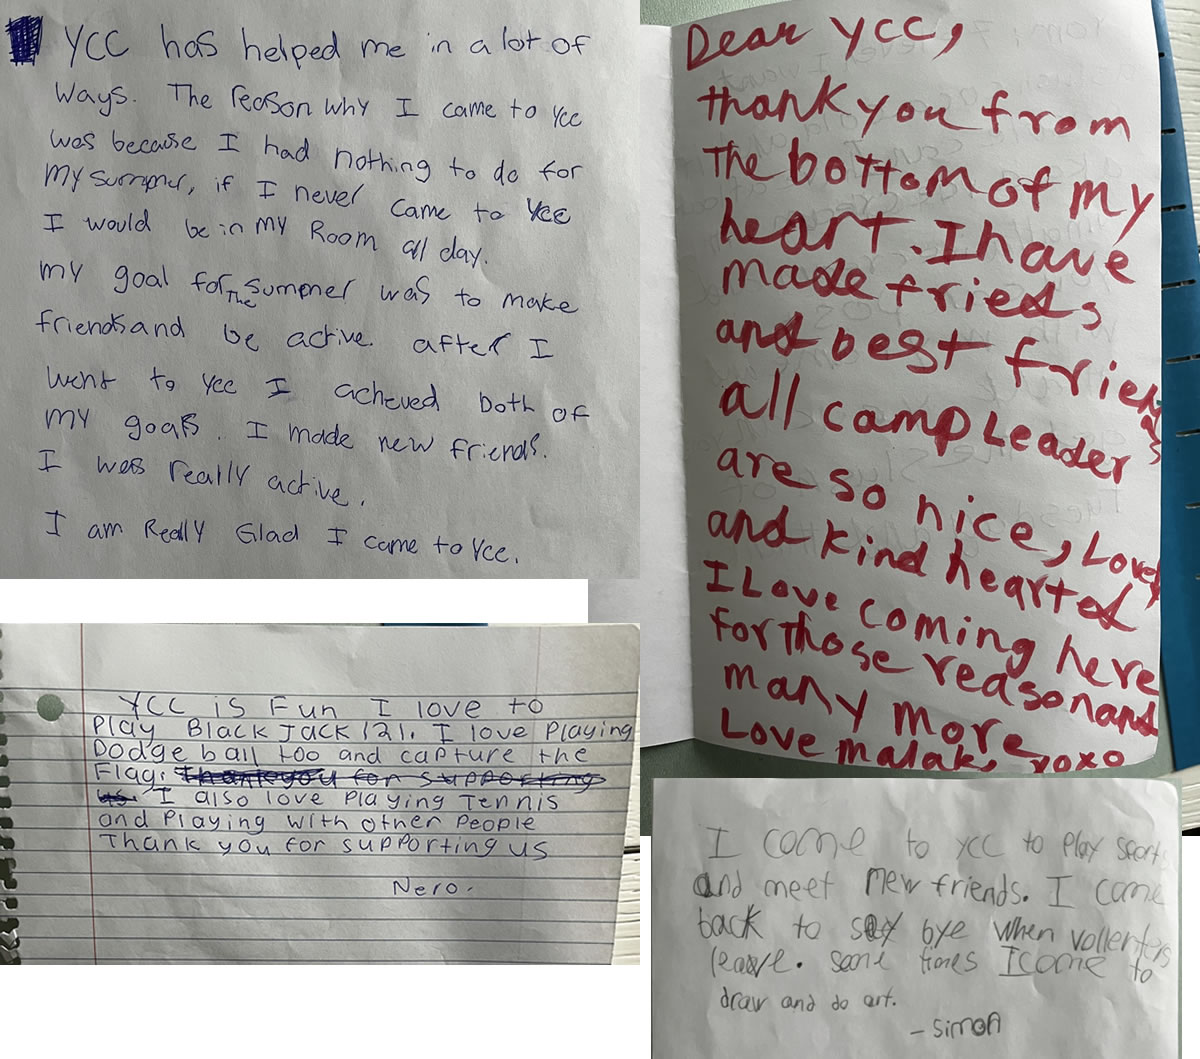 YCC has helped me in a lot of
ways. The reason why I came to YCC
was because I had nothing to do for
my summer, if I never came to YCC
I would be in my Room all day.
my goal for The summer was to make
friends and be active. after I
went to YCC I acheved both of
my goals. I made new friends.
I was really active.
I am Really Glad I came to YCC.
Dear YCC,
thank you from
The bottom of my
heart. I have
made frieds
and best friends
all camp Leaders
are so nice, Lovely
and kind hearted
I Love coming here
for those reason and
many more
Love malak, xoxo
YCC is Fun I love to
Play Black Jack /21. I love Playing
Dodge ball too and capture the
Flag. Thank you for supporting
us. I also love Playing Tennis
and Playing with other People
Thank you for supporting us
Nero.
I come to YCC to play sports
and meet new friends. I come
back to say bye when vollenters
leave. some times I come to
draw and do art.
- simon